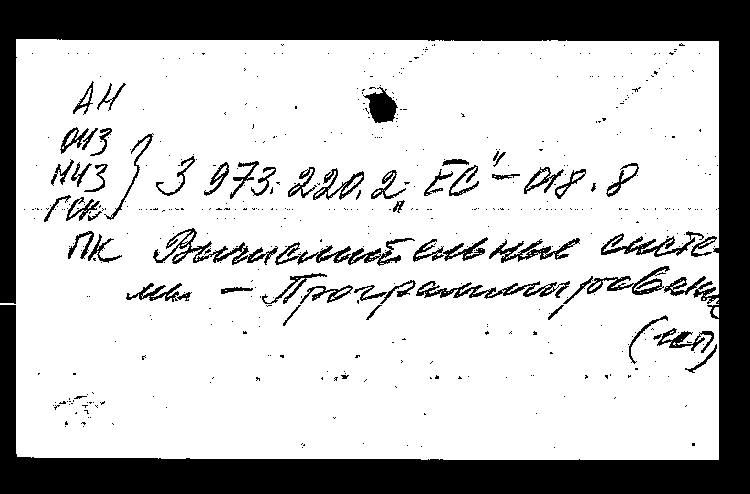 АН
ОЧЗ
НЧЗ
ГСК
} З 973.220.2 „ЕС“ – 018.8
ПК Вычислительные систе-
мы – Программирование
(нсп)